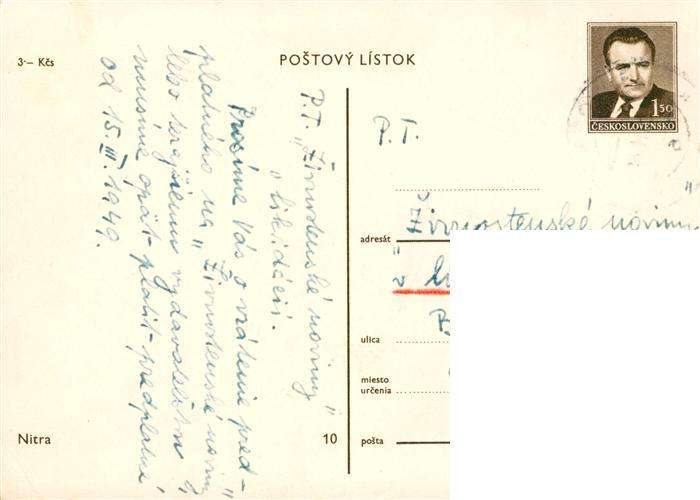 3·– Kčs
POŠTOVÝ LÍSTOK
1 50
ČESKOSLOVENSKO
P.T. „Živnostenské noviny"
„likvidácii.
Prosíme Vás o vrátenie pred-
platného na „Živnostenské noviny"
lebo terajšiemu vydavateľovi
musíme opäť platiť predplatné
od 15.III.1949.
P.T.
„Živnostenské noviny"
v
adresát
ulica
miesto
určenia
pošta
Nitra
10